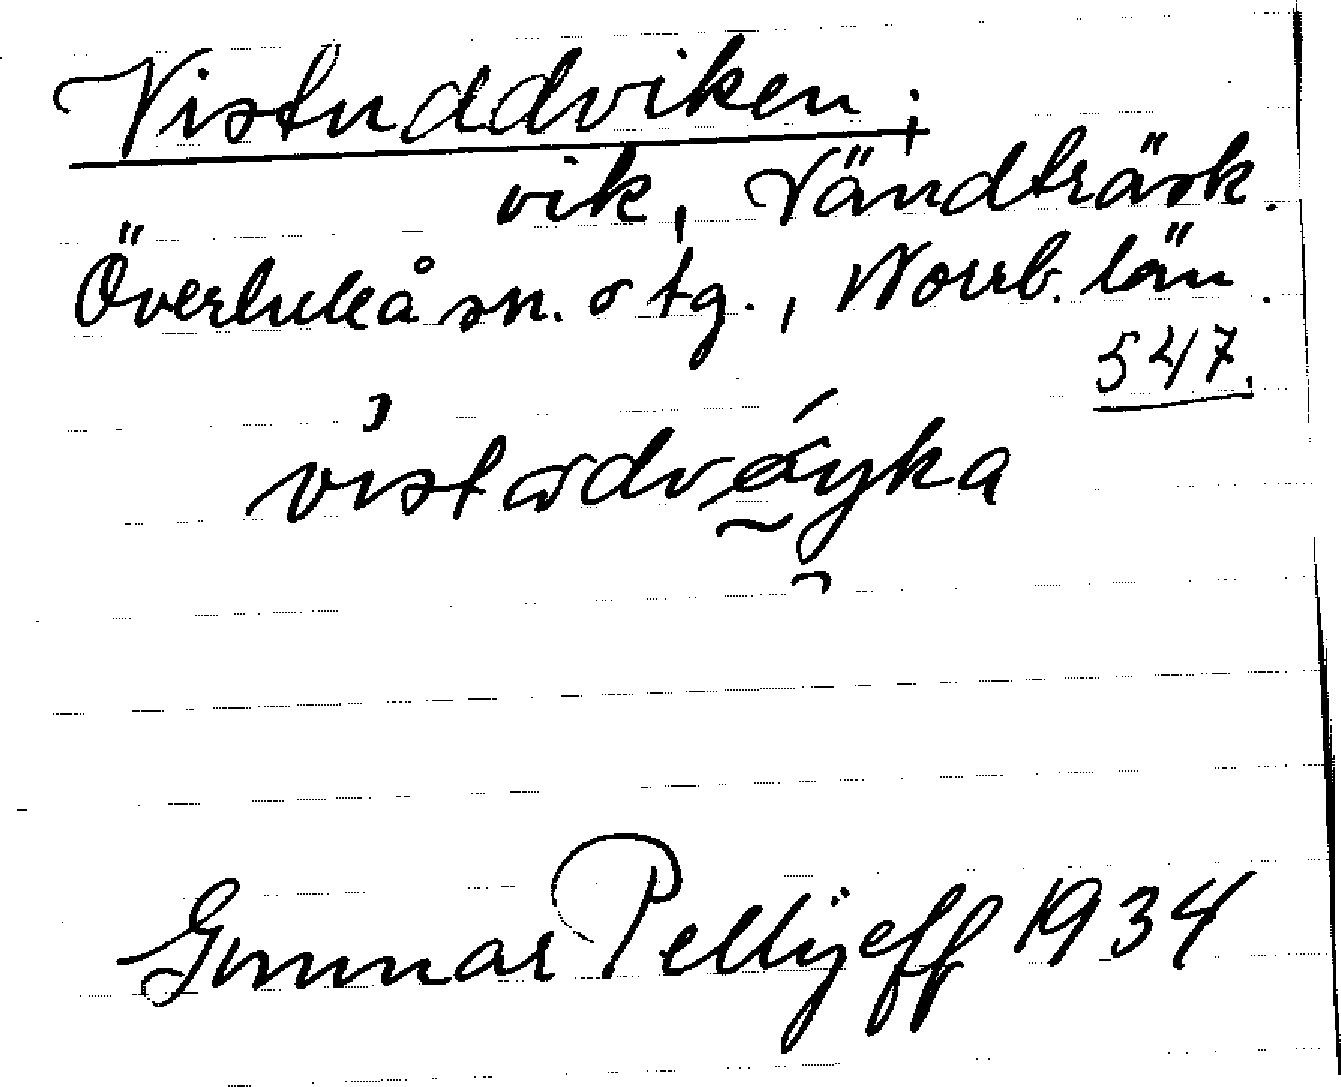 Vistuddviken,
vik, Vändträsk.
Överluleå sn. o tg., Norrb. län.
547.
Gunnar Pellijeff 1934